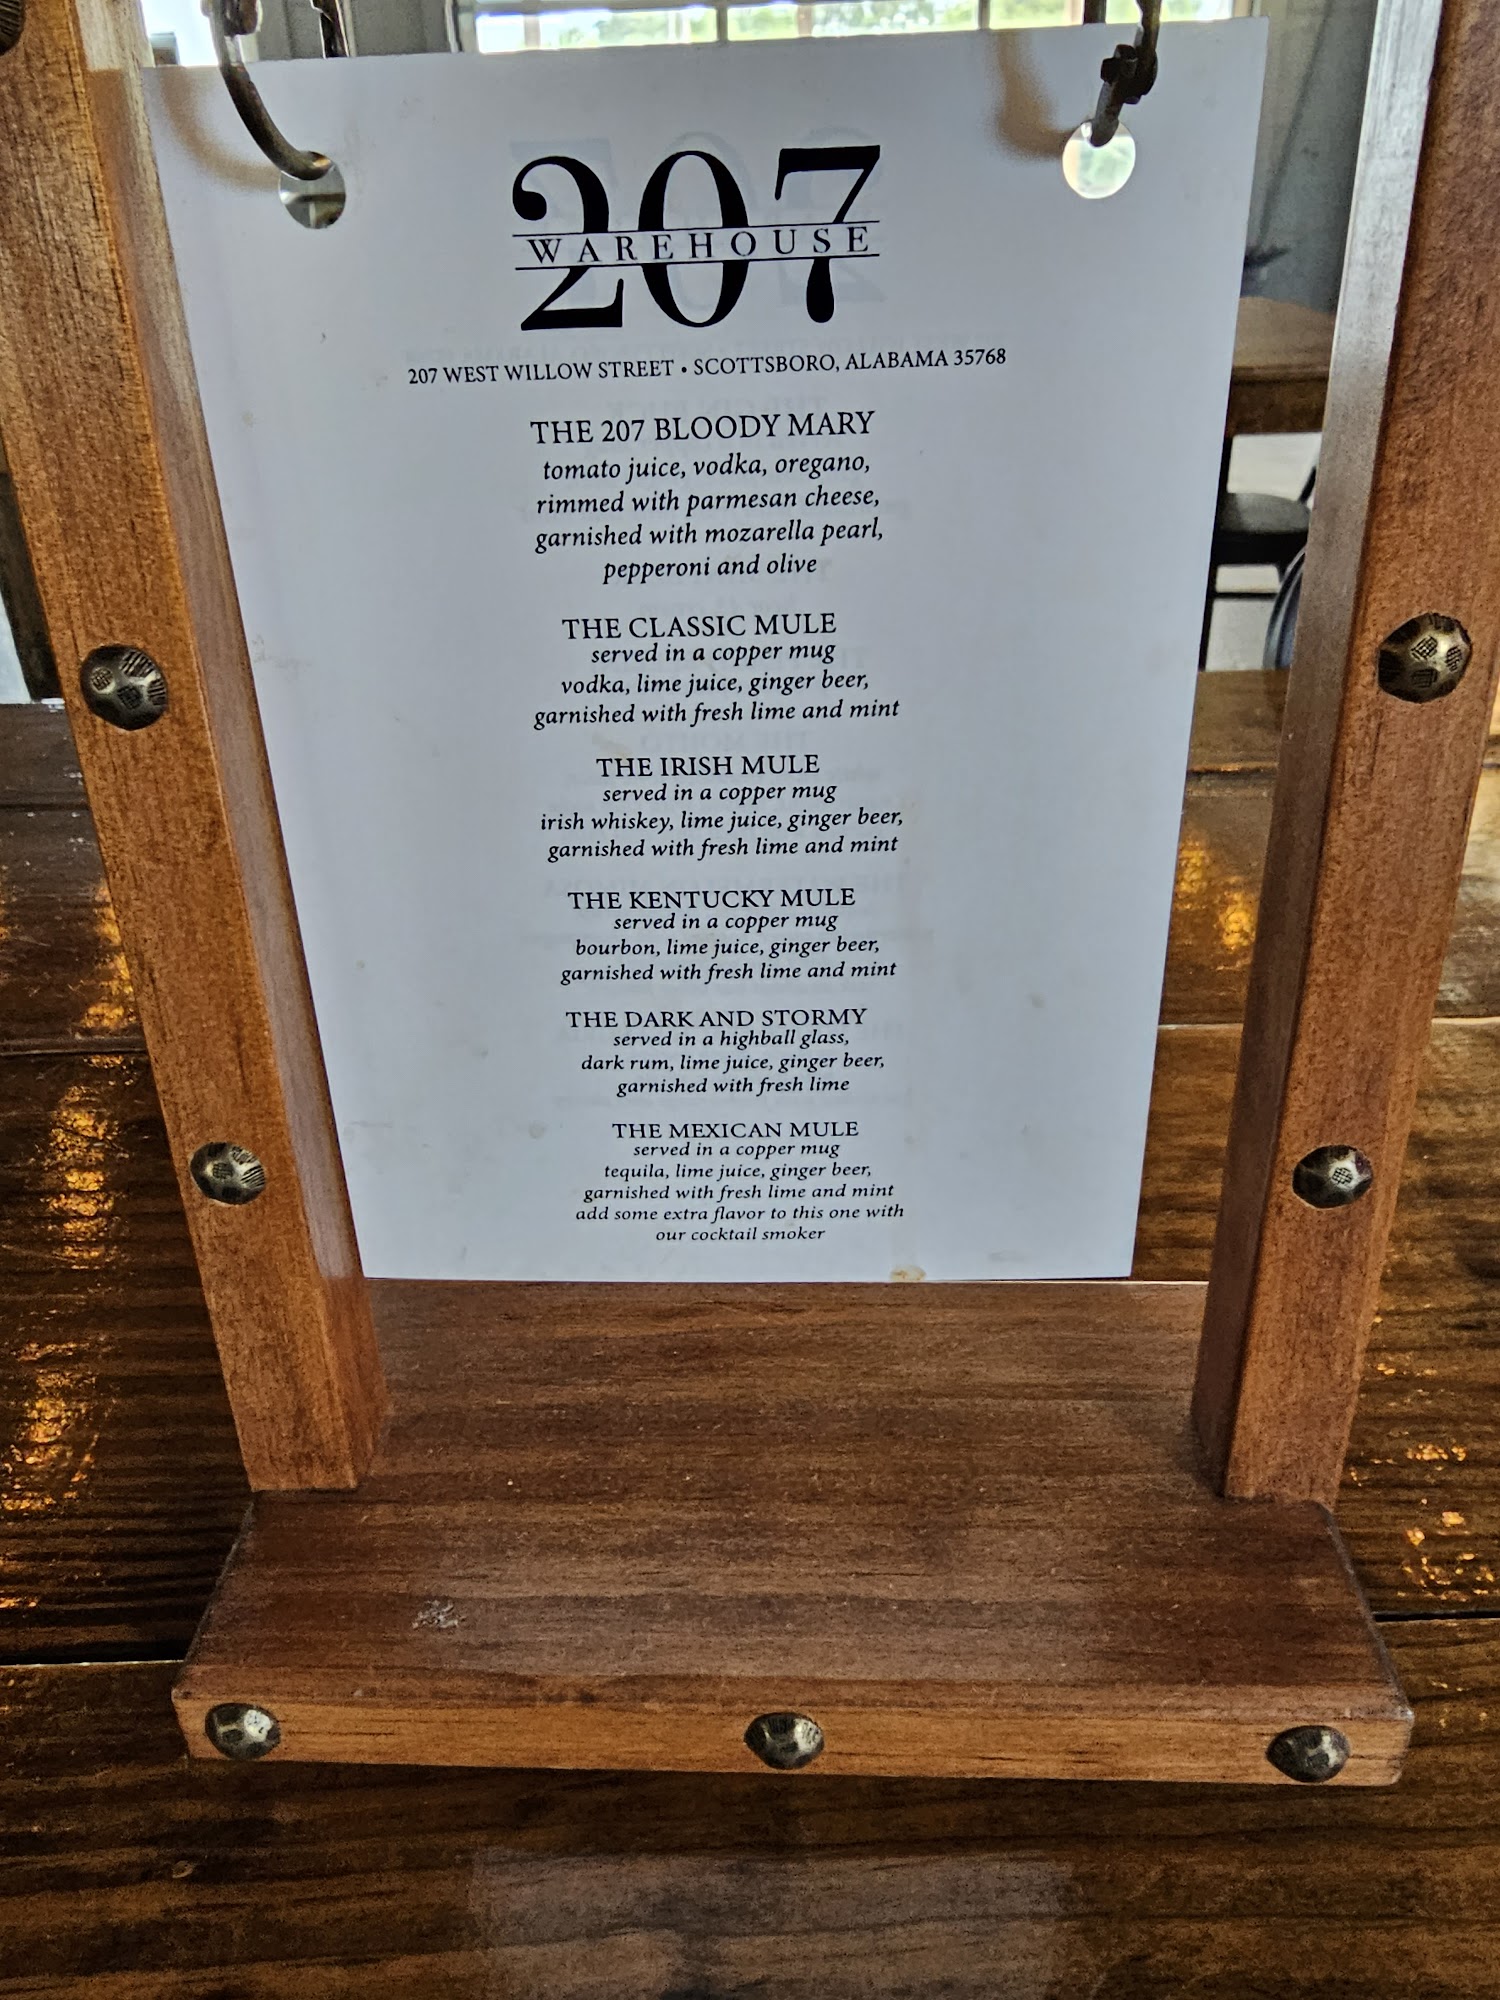 207
WAREHOUSE
207 WEST WILLOW STREET • SCOTTSBORO, ALABAMA 35768
THE 207 BLOODY MARY
tomato juice, vodka, oregano,
rimmed with parmesan cheese,
garnished with mozarella pearl,
pepperoni and olive
THE CLASSIC MULE
served in a copper mug
vodka, lime juice, ginger beer,
garnished with fresh lime and mint
THE IRISH MULE
served in a copper mug
irish whiskey, lime juice, ginger beer,
garnished with fresh lime and mint
THE KENTUCKY MULE
served in a copper mug
bourbon, lime juice, ginger beer,
garnished with fresh lime and mint
THE DARK AND STORMY
served in a highball glass,
dark rum, lime juice, ginger beer,
garnished with fresh lime
THE MEXICAN MULE
served in a copper mug
tequila, lime juice, ginger beer,
garnished with fresh lime and mint
add some extra flavor to this one with
our cocktail smoker